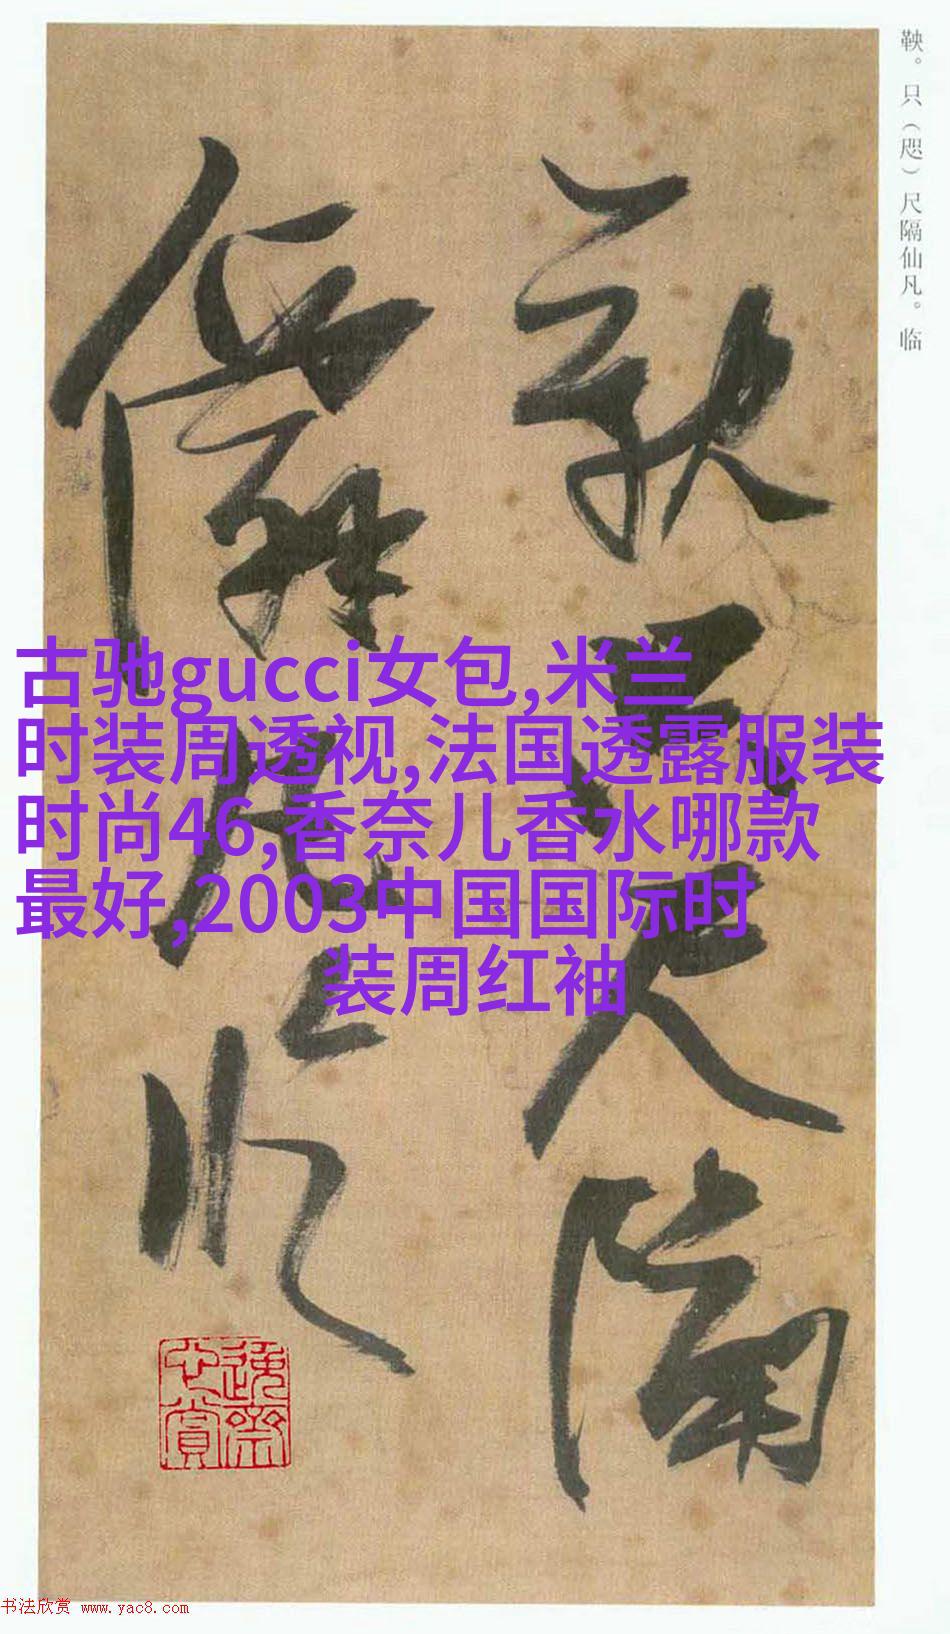 鞅。只（咫）尺隔仙凡。临
鞅只尺隔
仙凡临
古驰gucci女包,米兰
时装周透视,法国透露服装
时尚46,香奈儿香水哪款
最好,2003中国国际时
装周红袖
书法欣赏 www.yac8.com